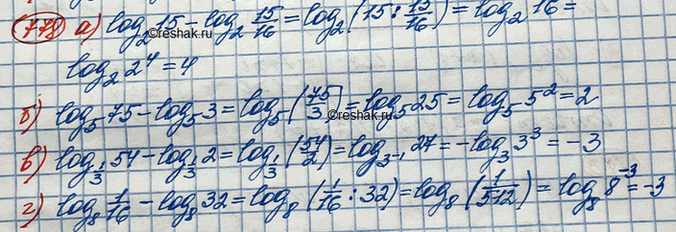 778 а) log₂15 - log₂ 15/16 = log₂(15 : 15/16) = log₂16 =
©reshak.ru
log₂2⁴ = 4
б) log₅75 - log₅3 = log₅(75/3) = log₅25 = log₅5² = 2
©reshak.ru
в) log_{1/3}54 - log_{1/3}2 = log_{1/3}(54/2) = log_{3⁻¹}27 = -log₃3³ = -3
г) log₈ 1/16 - log₈32 = log₈(1/16 : 32) = log₈(1/512) = log₈8⁻³ = -3